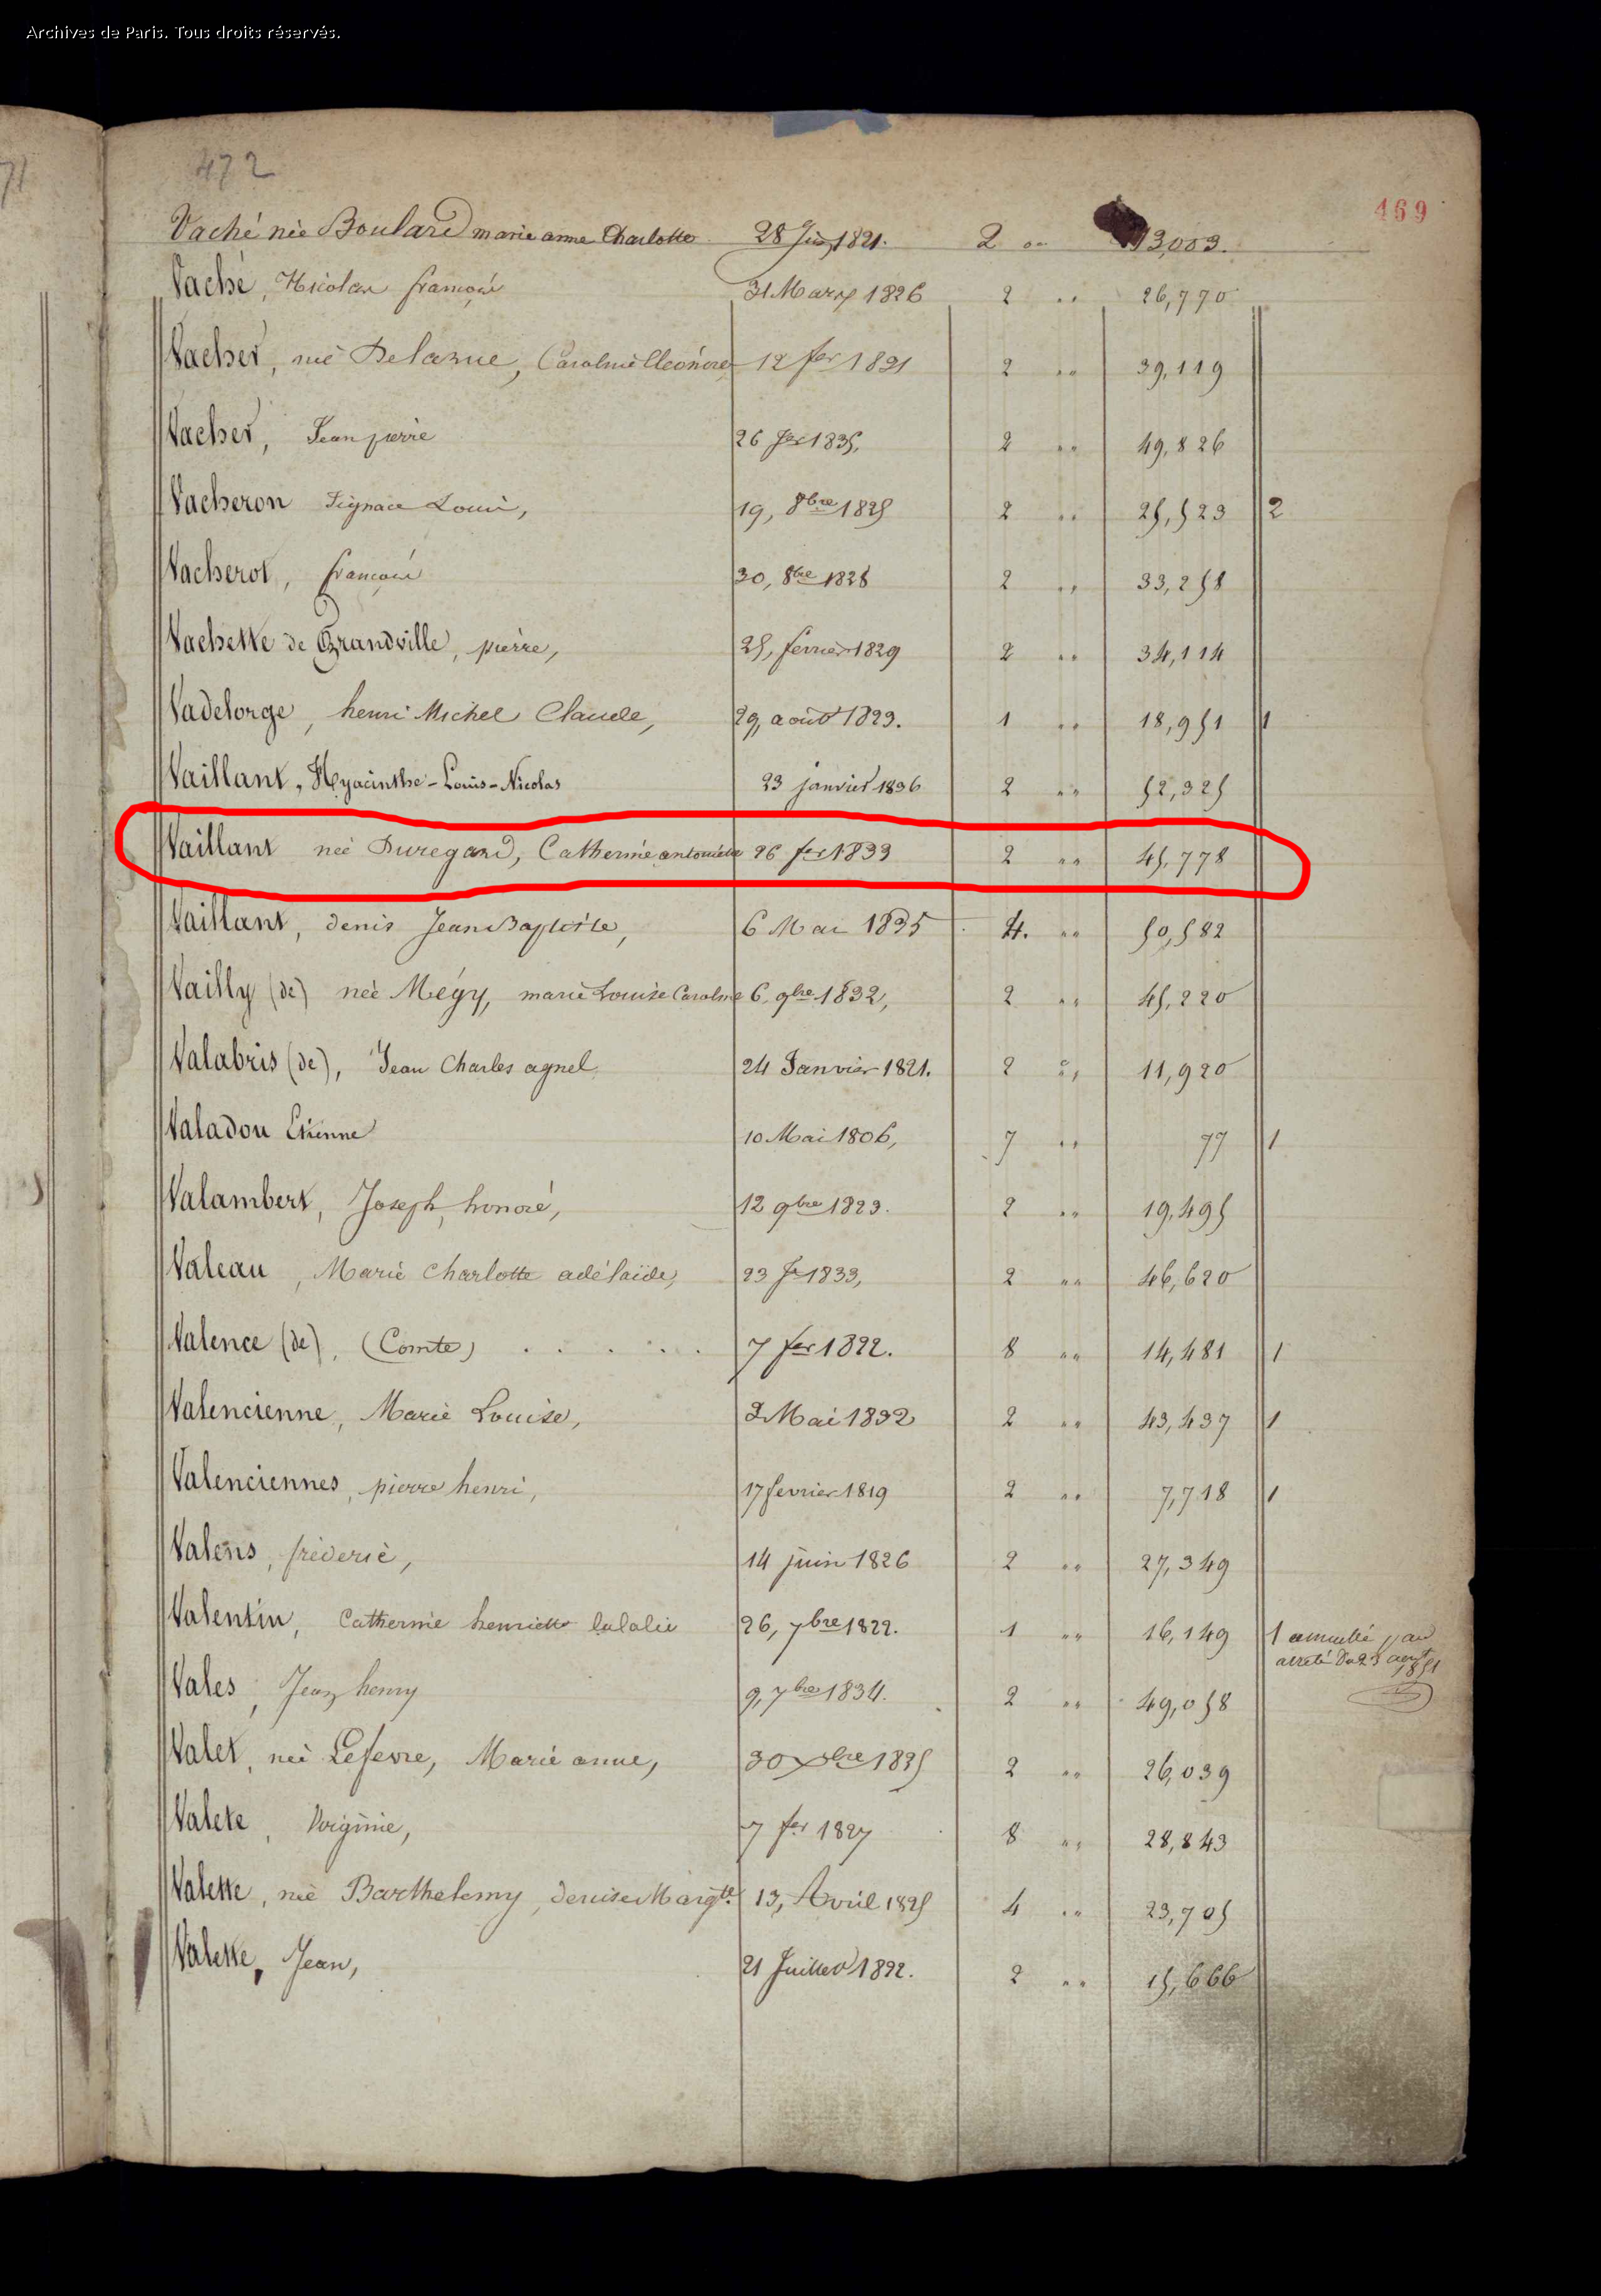 Archives de Paris. Tous droits réservés.
71
472
469
Vaché née Boulard marie anne Charlotte 28 Juin 1821. 2 "" 13,003.
Vaché, Nicolas françois 31 Mars 1826 2 "" 26,770
Vacher, née Delarue, Caroline Eleonore 12 fer 1831 2 "" 39,119
Vacher, Jean pierre 26 fer 1835, 2 "" 49,826
Vacheron Louis, 19, 8bre 1825 2 "" 25,523 2
Vacherot, françois 30, 8bre 1828 2 "" 33,258
Vachette de Grandville, pierre, 25, fevrier 1829 2 "" 34,114
Vadelorge, henri Michel Claude, 29, août 1823. 1 "" 18,951 1
Vaillant, Hyacinthe-Louis-Nicolas 23 janvier 1836 2 "" 52,325
Vaillant née Duregard, Catherine antoinette 26 fer 1833 2 "" 45,778
Vaillant, denis Jean Baptiste, 6 Mai 1835 4. "" 50,582
Vailly (de) née Mégy, marie Louise Caroline 6, 9bre 1832, 2 "" 45,220
Valabris (de), Jean Charles agnel 24 Janvier 1821. 2 "" 11,920
Valadou Etienne 10 Mai 1806, 7 "" 77 1
Valambert, Joseph, honoré, 12 9bre 1823. 2 "" 19,495
Valeau, Marie Charlotte adélaïde, 23 1833, 2 "" 46,620
Valence (de), (Comte) . . . . . 7 fer 1822. 8 "" 14,481 1
Valencienne, Marie Louise, 2 Mai 1832 2 "" 43,437 1
Valenciennes, pierre henri, 17 fevrier 1819 2 "" 7,718 1
Valens, fréderic, 14 juin 1826 2 "" 27,349
Valentin, Catherine henriette Eulalie 26, 7bre 1822. 1 "" 16,149 1 annullé par
arreté du 23 aout
1851
Vales, Jean henry 9, 7bre 1834. 2 "" 49,058
Valet, née Lefevre, Marie anne, 30 Xbre 1825 2 "" 26,039
Valete, Virginie, 7 fer 1827 8 "" 28,843
Valette, née Barthelemy, denise Margte 13, Avril 1825 4 "" 23,705
Valette, Jean, 21 Juillet 1822. 2 "" 15,666